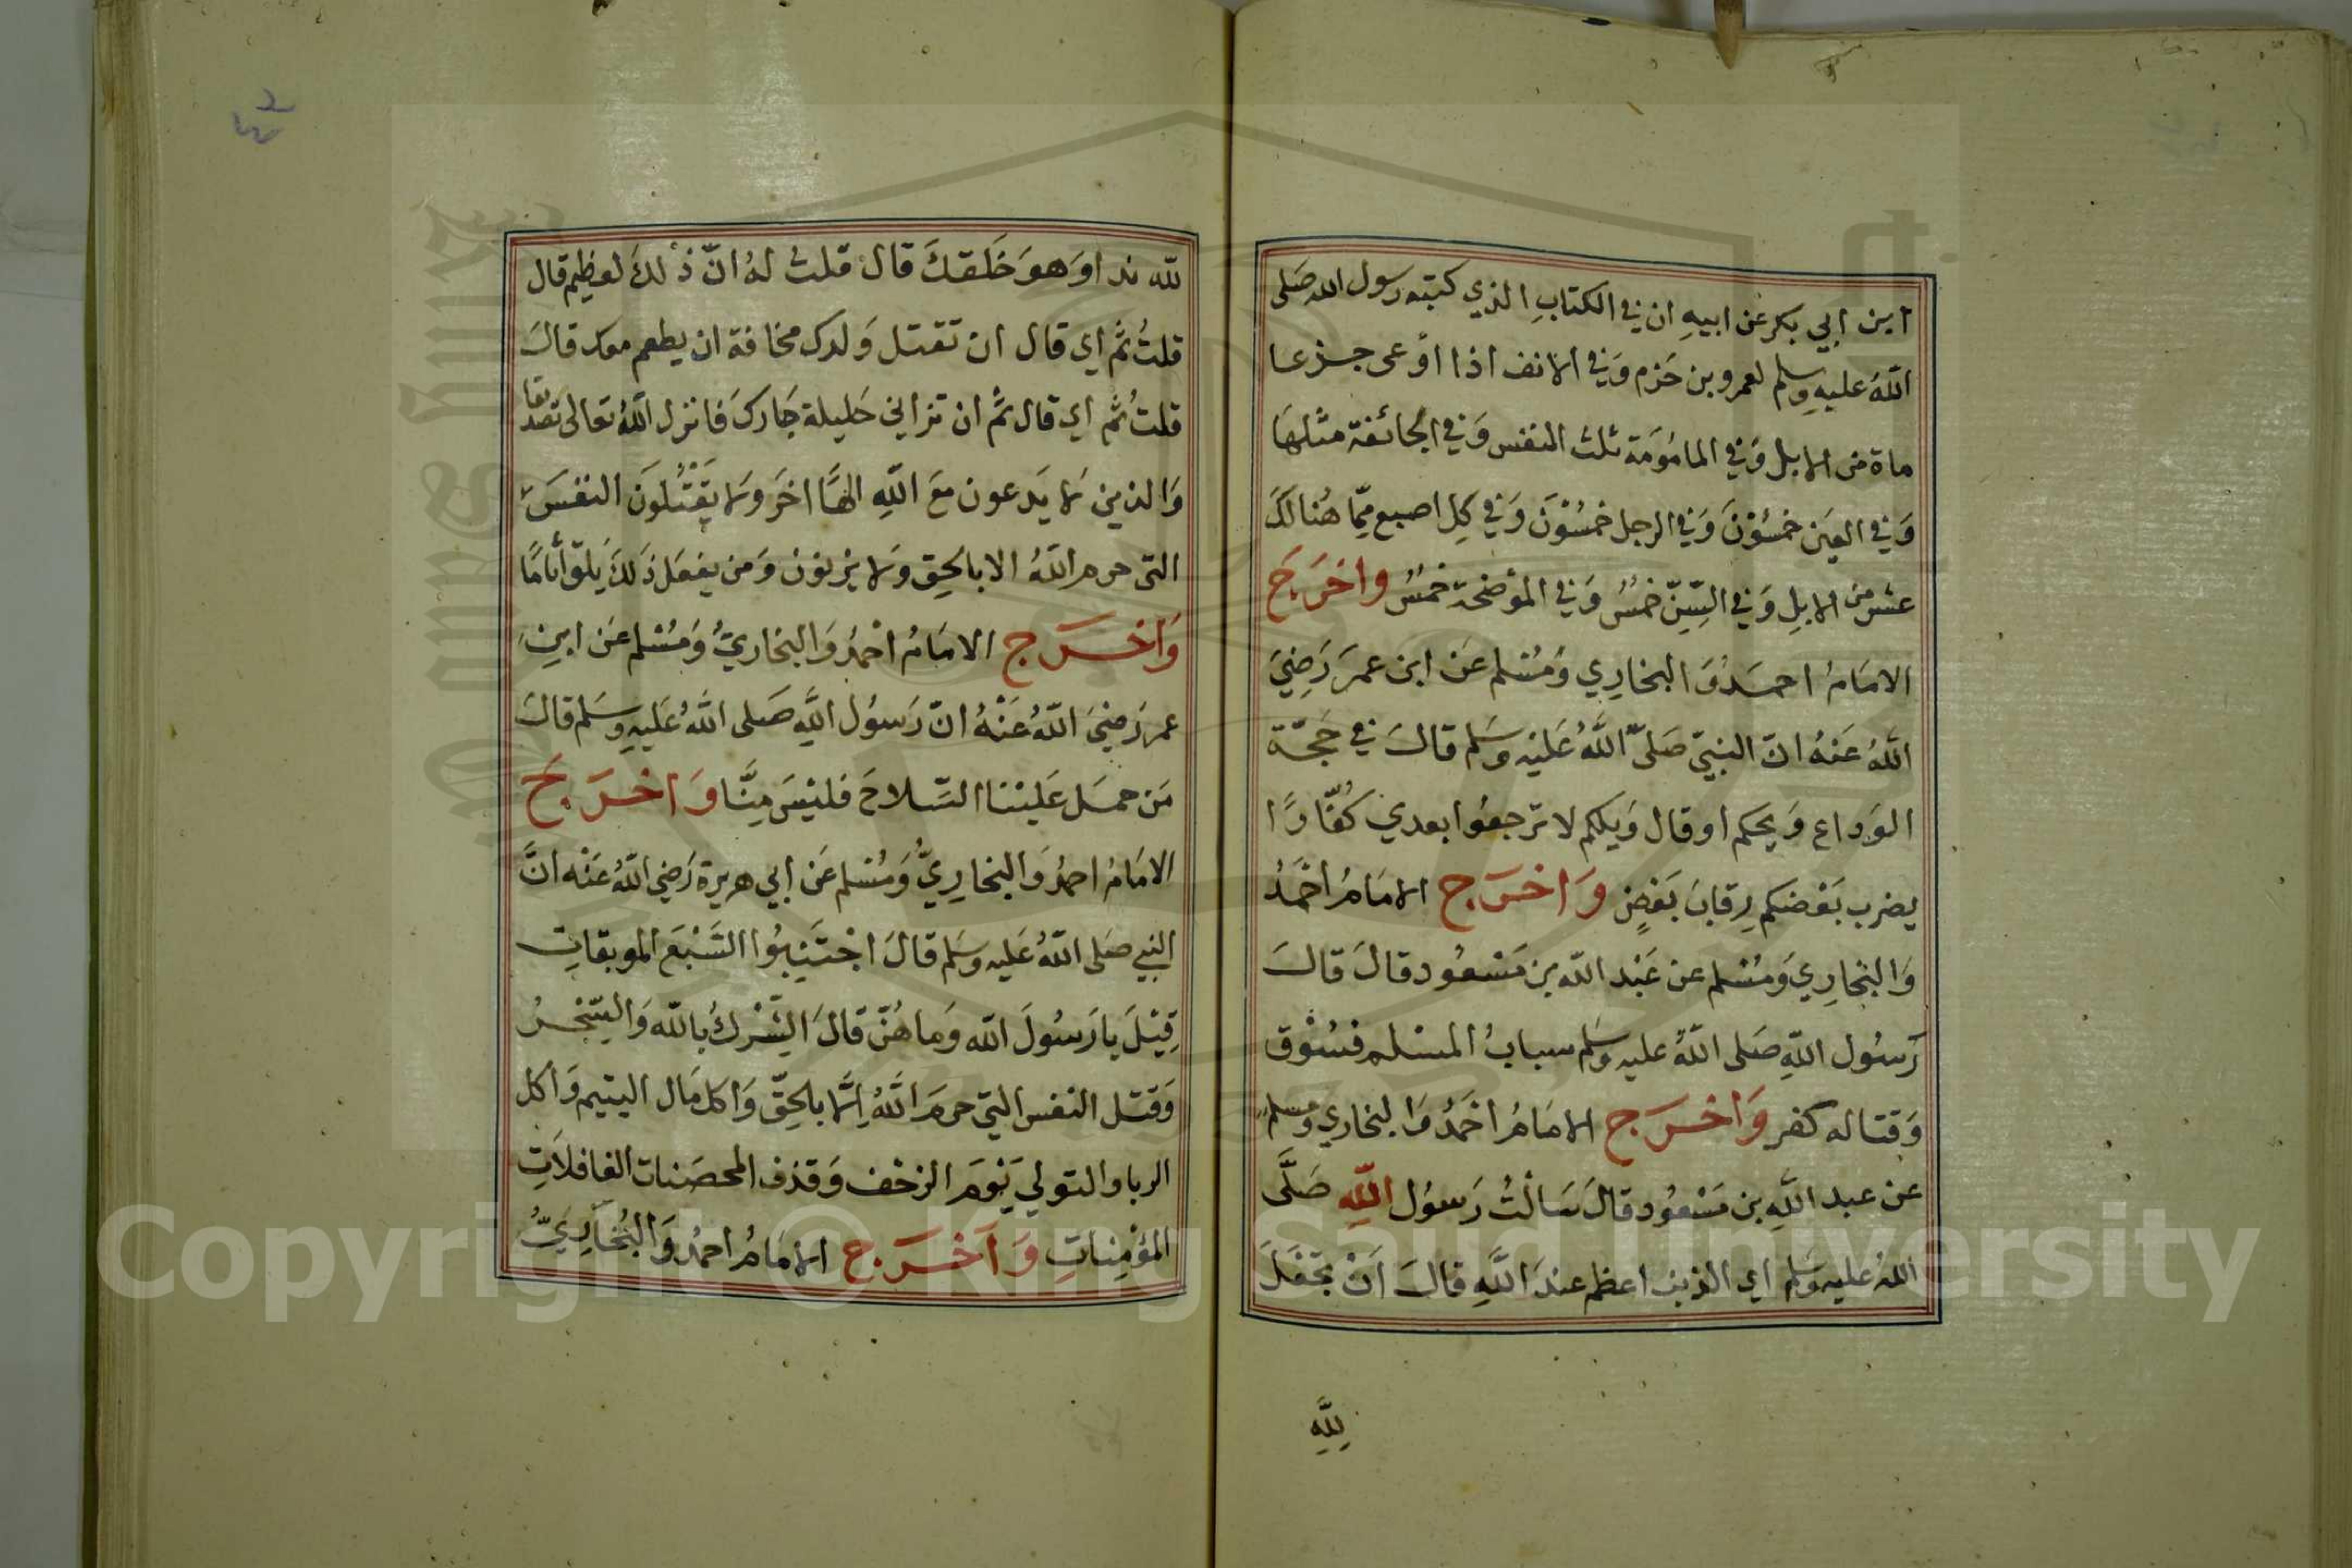 ابن ابي بكر عن ابيهِ ان في الكتابِ الذي كتبته رسول الله صَلى
اللهُ عليهِ وسلم لعمرو بن حَزم وَفي الانف اذا اوعى جزعا
ماة من الابل وَفي المامُومَة ثلث النفس وَفي الجائفة مثلهَا
وَفي العَين خمسُوْنَ وَفي الرجل خمسُوْنَ وَفي كلِ اصبع مِمّا هُنالكَ
عشر من الابِلِ وَفي السِّنِّ خمسٌ وَفي الموضحة خمسٌ واخرَجَ
الامَامُ احمَدُ وَالبخارِي وَمُسْلم عَن ابن عمرَ رَضِيَ
اللهُ عَنهُ انّ النبيّ صَلىّ اللّهُ عَليْهِ وسَلم قالَ في حَجّة
الوَداع وَيحكم او قال وَيلكم لا ترجعُوا بعدي كُفّارًا
يضرب بَعْضكم رِقابَ بَعْضٍ وَاخرَج الامَامُ احْمَدُ
وَالبخارِي وَمُسْلم عن عَبْد اللّه بن مَسْعُود قالَ قالَ
رَسُول اللّهِ صَلى اللّهُ عليه وسَلم سبابُ المسْلم فسُوْق
وَقتاله كفر وَاخرَج الامَامُ احْمَدُ وَالبخاري ومسلم
عن عبد اللّهِ بن مَسْعُود قالَ سَالتُ رَسوُل اللّهِ صَلَّى
اللهُ عليه وسَلم اي الذنب اعظم عندَ اللّهِ قالَ اَنْ تجْعَلَ
لِلّهِ
للّه ندا وَهوَ خَلقكَ قال قلت لهُ انّ ذلكَ لعظيم قال
قلتُ ثم اي قال ان تقتل وَلدك مخافة ان يطعم معك قالَ
قلتُ ثم اي قال ثم ان تزاني حَليلة جَارك فانزل اللّهُ تعالى تصَديقا
وَالذين لا يَدعون معَ اللّهِ الهًا اخرَ ولا يَقْتُلونَ النفسَ
التي حرم اللّهُ الا بالحَق وَلا يزنون وَمن يفعَل ذَلكَ يَلقَ أثامًا
وَاخرَج الامَامُ احْمدُ وَالبخاريُّ وَمُسْلم عَن ابنِ
عمر رَضيَ اللّهُ عَنْهُ انّ رَسوُل اللّهِ صَلى اللّهُ عَليهِ وسَلم قالَ
مَن حمَل عَليْنا السّلاحَ فليْسَ مِنَّا وَاخرَجَ
الامَامُ احمدُ وَالبخارِيُّ وَمُسْلم عَن ابي هريرة رَضي اللّهُ عَنْه انَّ
النبي صَلى اللّهُ عَليه وسَلم قالَ اجْتَنِبُوُا السَّبْعَ الموبقاتِ
قِيْلَ يا رَسُولَ اللّه وَما هُنّ قالَ الشِّرْكُ باللّه وَالسِّحْرُ
وَقتل النفس التي حرمَ اللَّهُ اِلَّا بالحِقّ وَاكل مَال اليتيم وَاكل
الربا والتولي يَوْمَ الزحْف وَقذف المحصَنات الغافلاَتِ
المؤمِنِاتِ وَاَخْرَج الامَامُ احمدُ وَالبُخَارِيُّ
Copyright © King Saud University